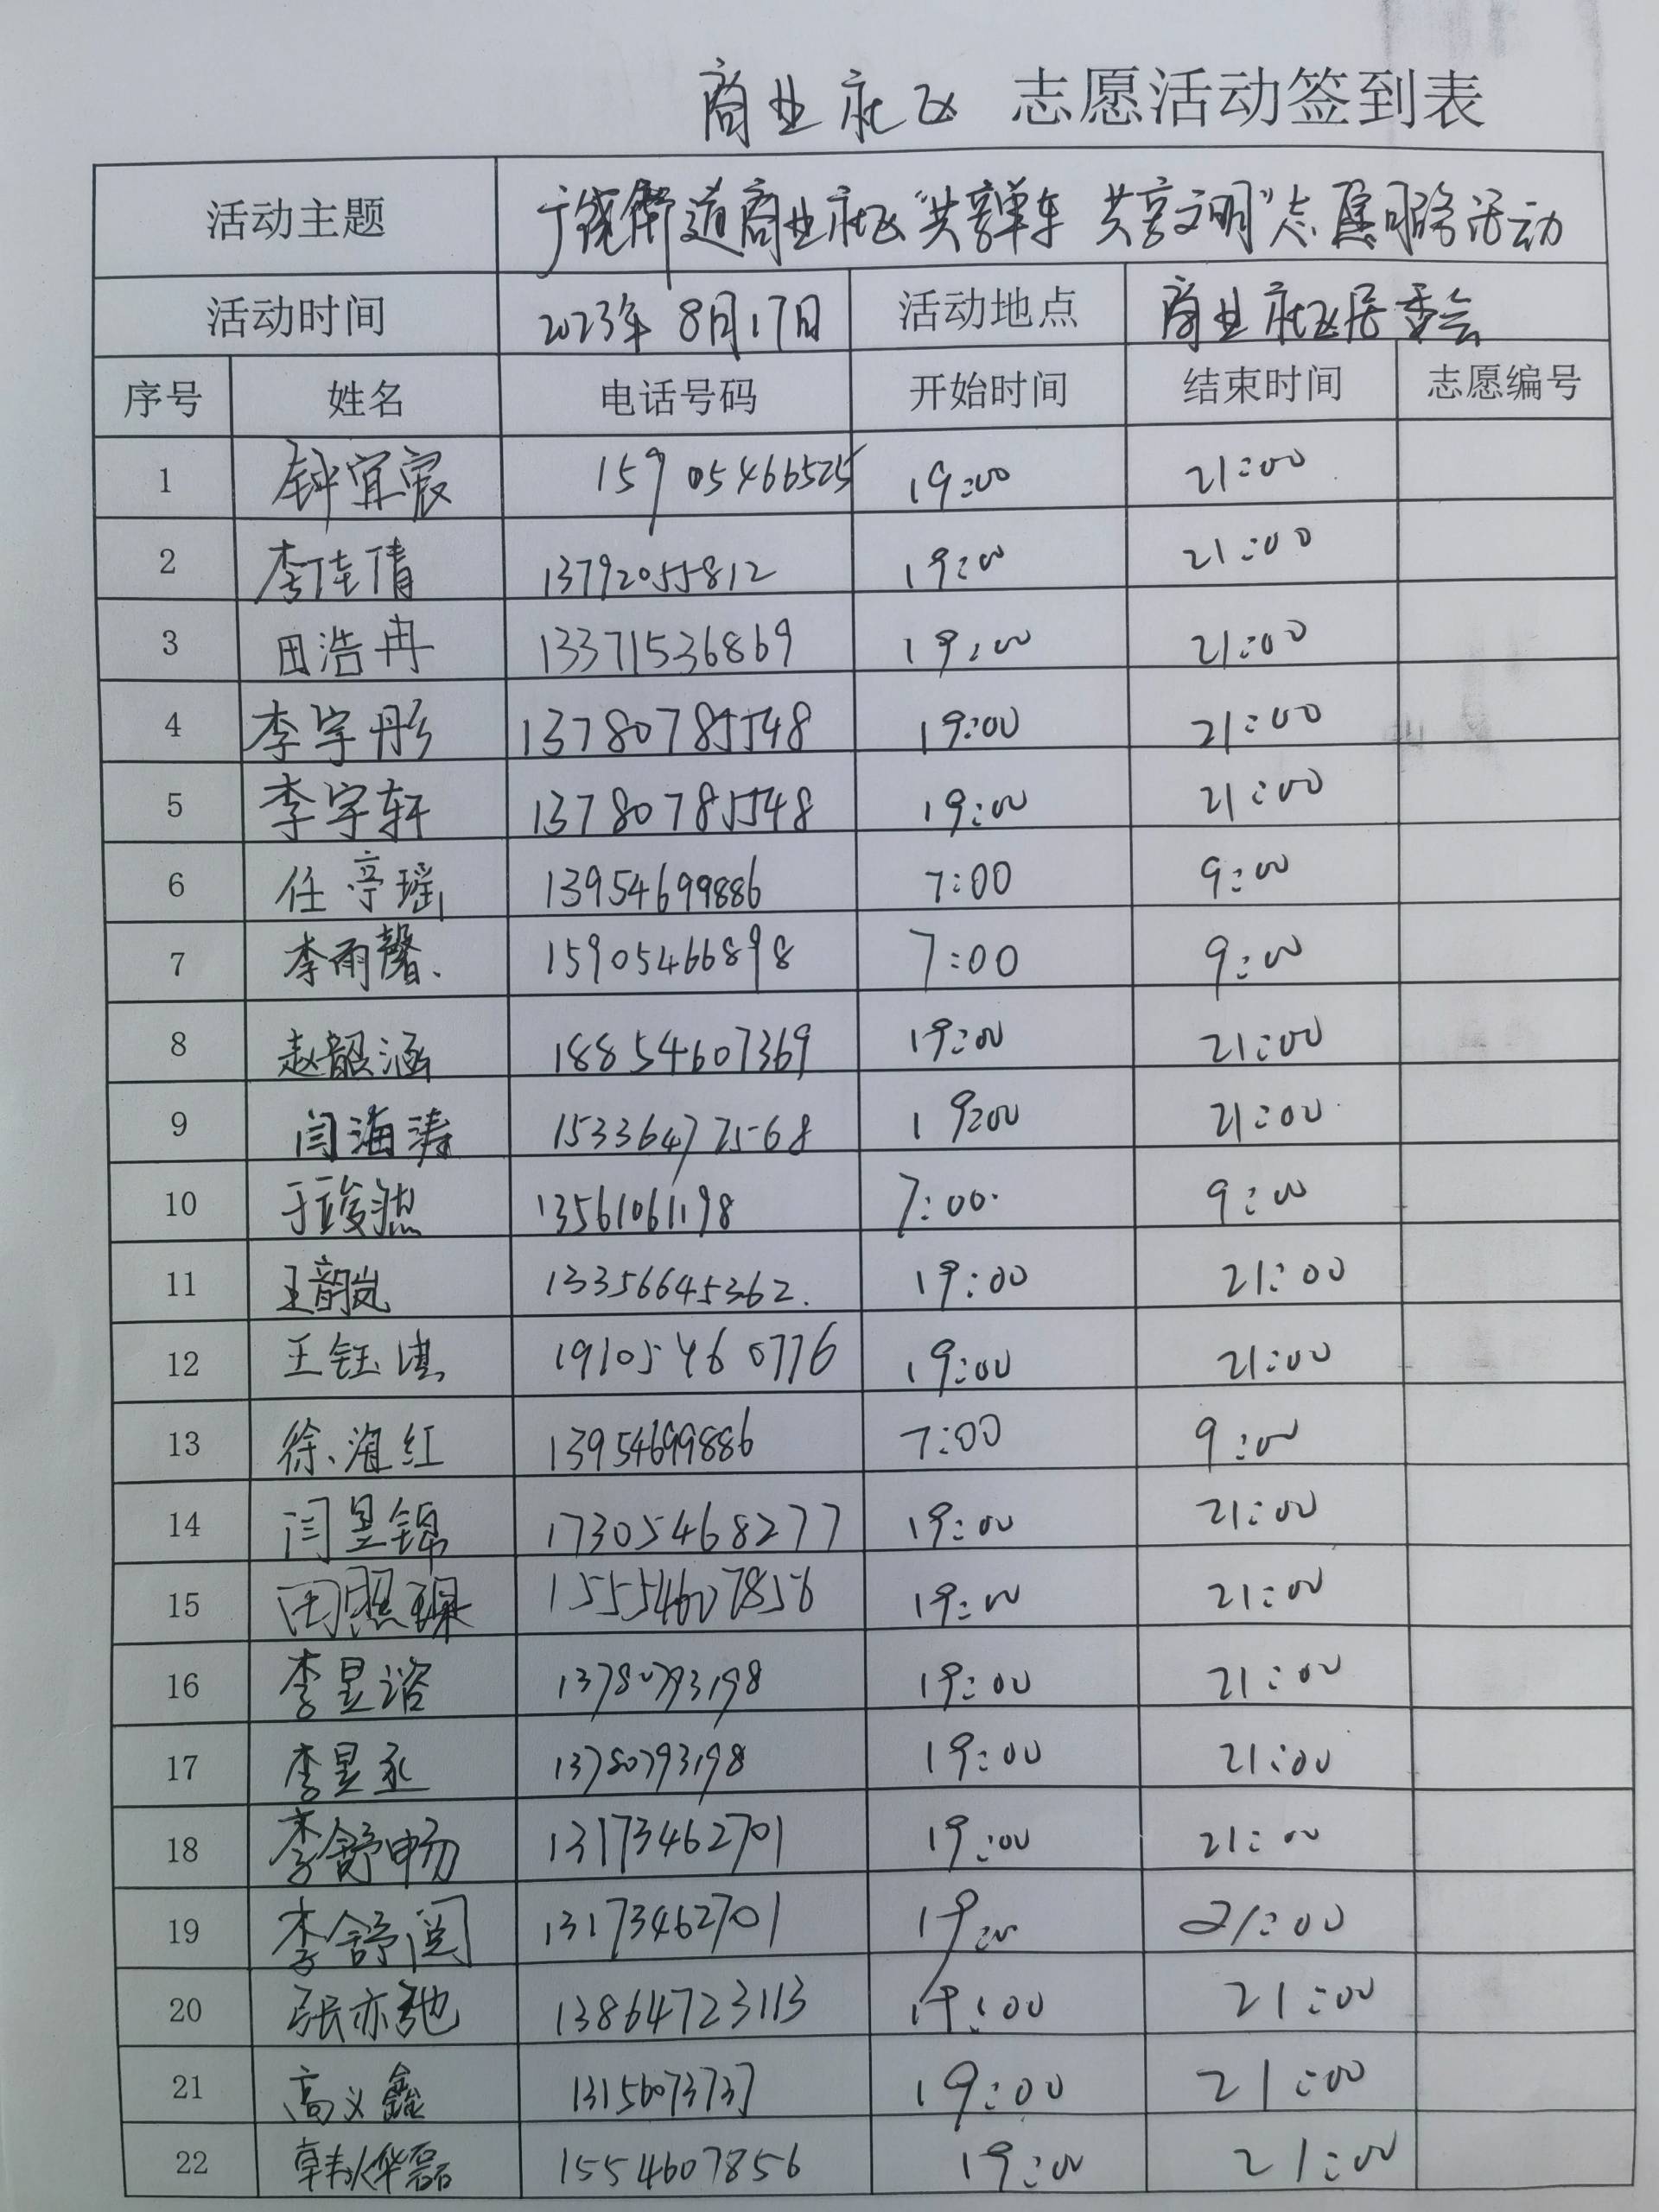 商业社区 志愿活动签到表
活动主题 广饶街道商业社区“共享单车 共享文明”志愿服务活动
活动时间 2023年8月17日 活动地点 商业社区居委会
序号 姓名 电话号码 开始时间 结束时间 志愿编号
1 钟宜宸 15905466525 19:00 21:00
2 李佳倩 13792055812 19:00 21:00
3 田浩冉 13371536869 19:00 21:00
4 李宇彤 13780785548 19:00 21:00
5 李宇轩 13780785548 19:00 21:00
6 任亭瑶 13954699886 7:00 9:00
7 李雨馨 15905466898 7:00 9:00
8 赵韶涵 18854607369 19:00 21:00
9 闫海涛 15336477568 19:00 21:00
10 13561061198 7:00 9:00
11 王韵岚 13356645362 19:00 21:00
12 王钰淇 19105460776 19:00 21:00
13 徐海红 13954699886 7:00 9:00
14 闫昱锦 17305468277 19:00 21:00
15 田照璟 15554607856 19:00 21:00
16 李昱谘 13780793198 19:00 21:00
17 李昱丞 13780793198 19:00 21:00
18 李舒畅 13173462701 19:00 21:00
19 李舒阅 13173462701 19:00 21:00
20 张亦弛 13864723113 19:00 21:00
21 高义鑫 13156073737 19:00 21:00
22 韩烨磊 1554607856 19:00 21:00